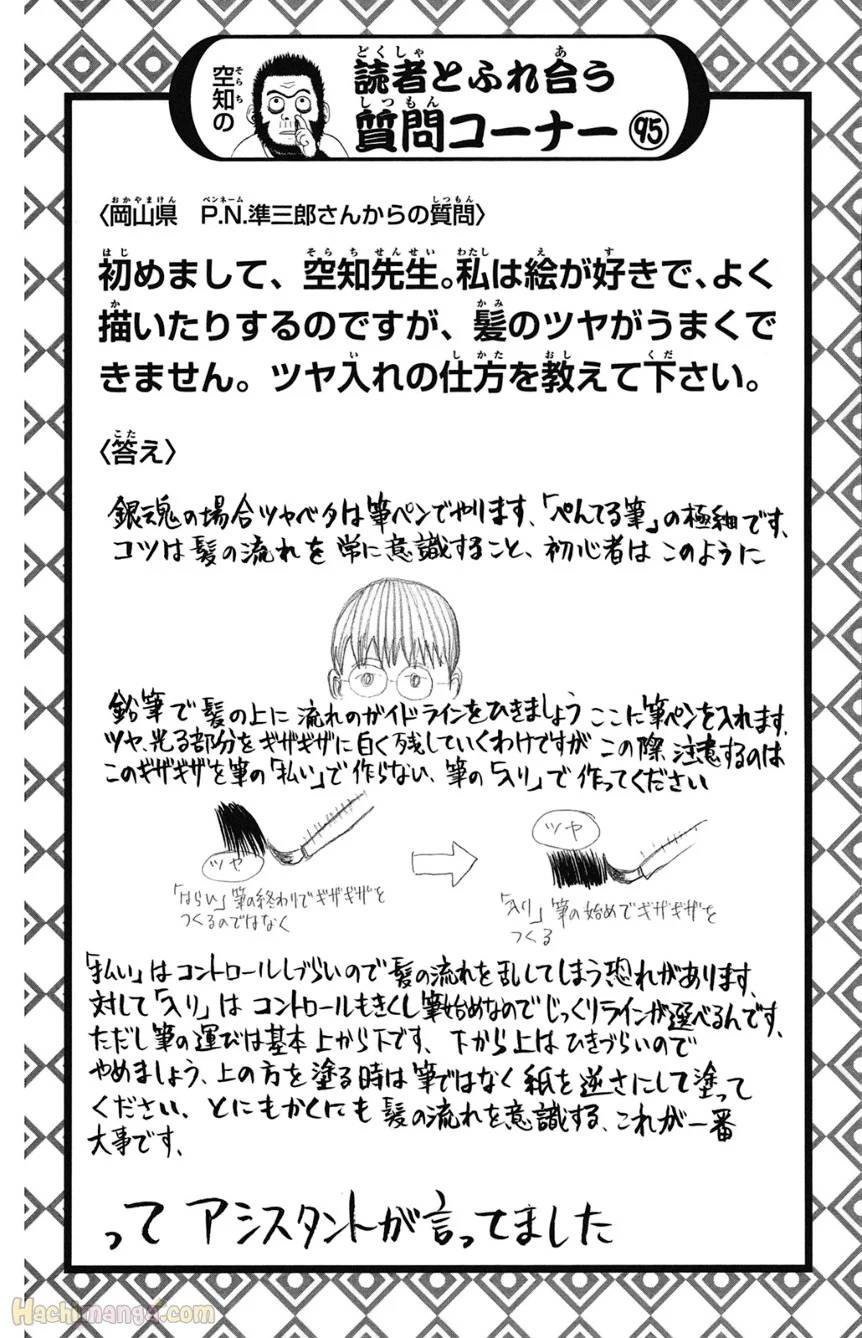 空知の
読者とふれ合う
質問コーナー 95
〈岡山県　P.N.準三郎さんからの質問〉
初めまして、空知先生。私は絵が好きで、よく
描いたりするのですが、髪のツヤがうまくで
きません。ツヤ入れの仕方を教えて下さい。
〈答え〉
銀魂の場合ツヤベタは筆ペンでやります、「ぺんてる筆」の極細です、
コツは髪の流れを常に意識すること、初心者はこのように
鉛筆で髪の上に流れのガイドラインをひきましょう ここに筆ペンを入れます、
ツヤ、光る部分をギザギザに白く残していくわけですが この際 注意するのは
このギザギザを筆の「払い」で作らない、筆の「入り」で作ってください
ツヤ
「はらい」筆の終わりでギザギザを
つくるのではなく
ツヤ
「入り」筆の始めでギザギザを
つくる
「払い」はコントロールしづらいので髪の流れを乱してしまう恐れがあります、
対して「入り」は コントロールもきくし筆始めなのでじっくりラインが選べるんです、
ただし筆の運びは基本上から下です、下から上は ひきづらいので
やめましょう、上の方を塗る時は筆ではなく紙を逆さにして塗って
ください、とにもかくにも髪の流れを意識する、これが一番
大事です、
って アシスタントが言ってました
Hachimanga.com